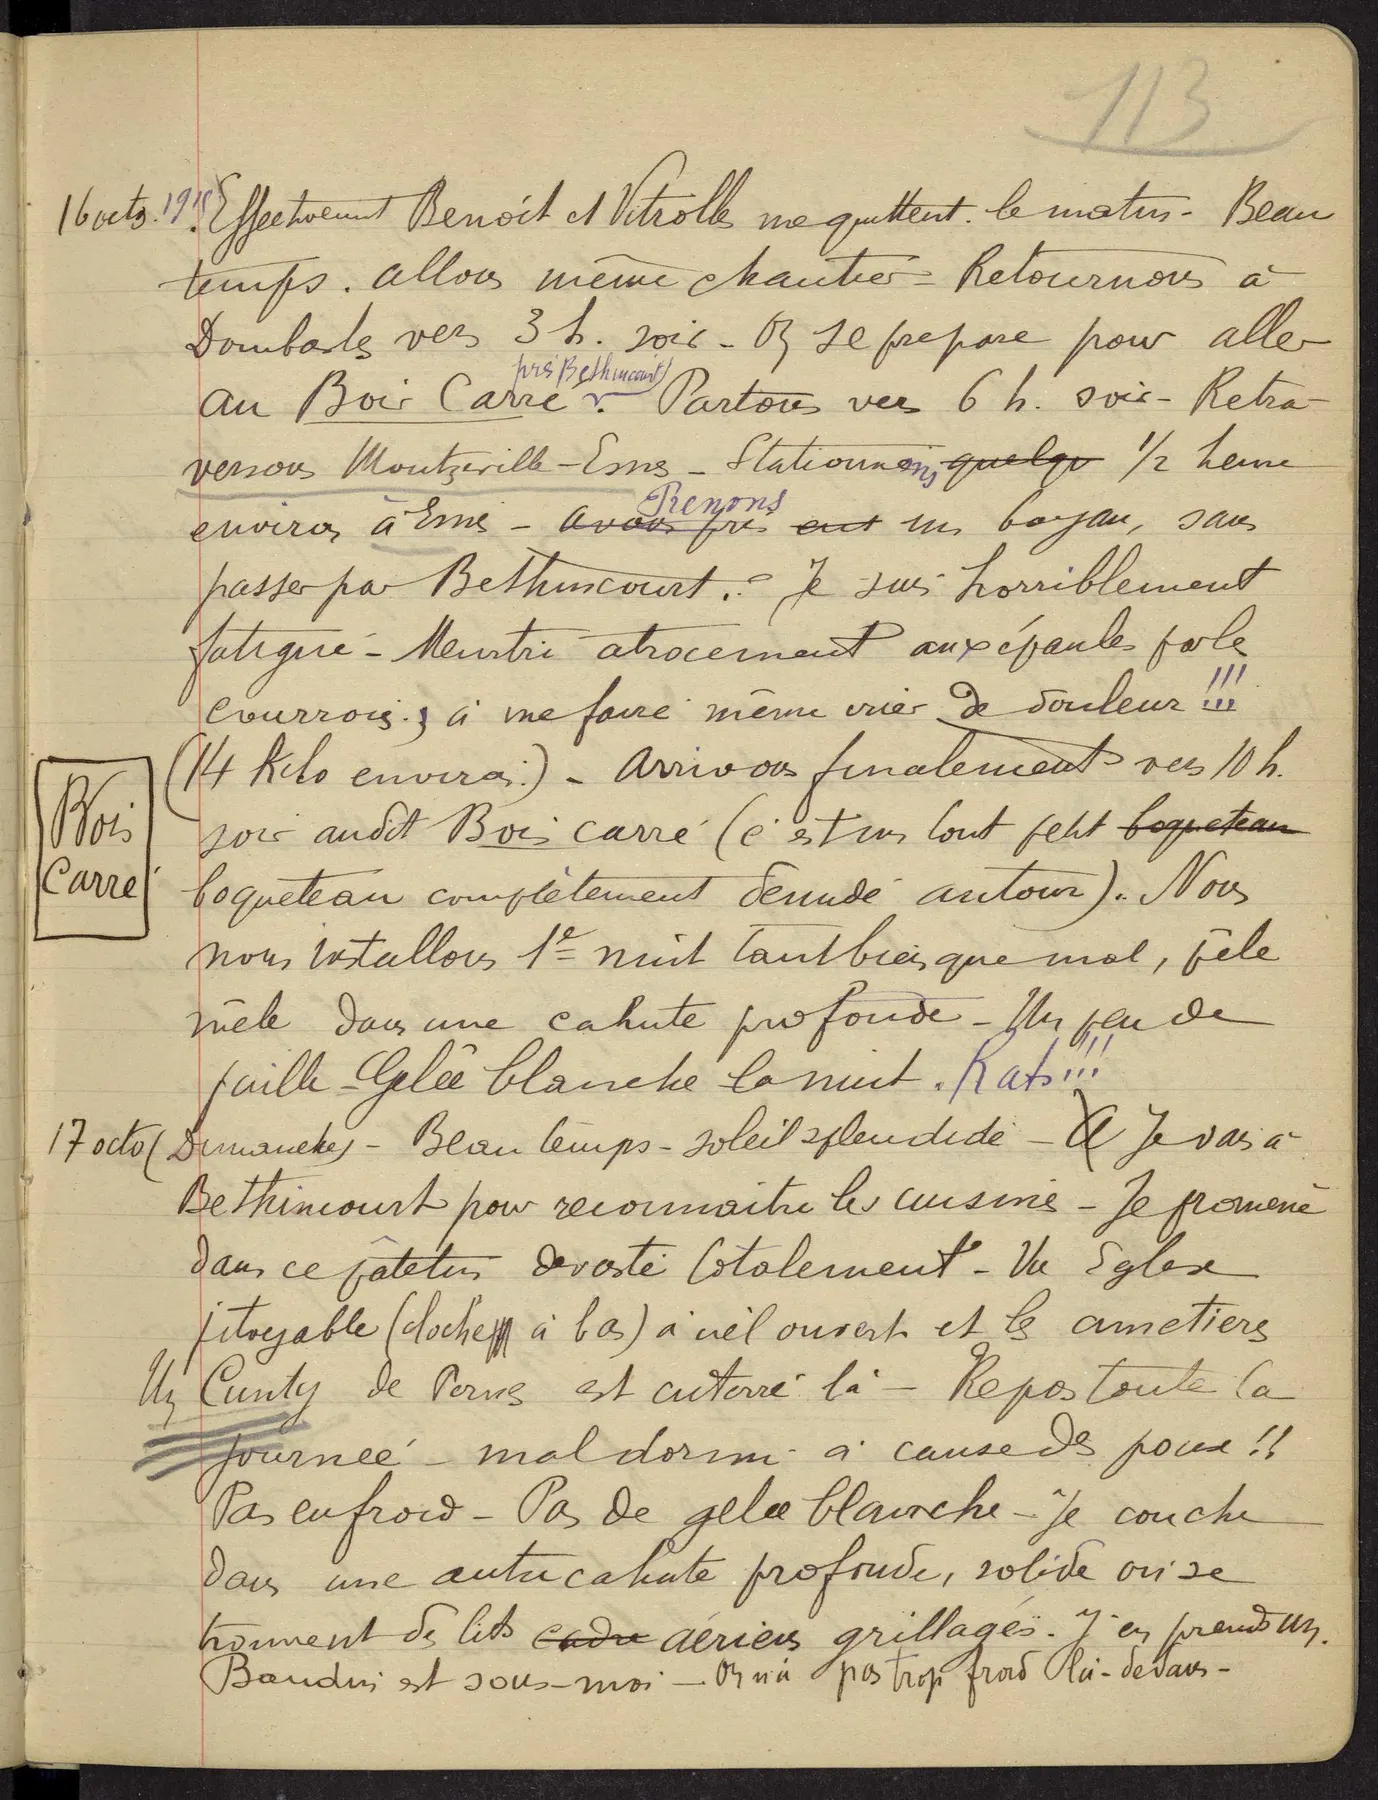 113
16 octo. 1915. Effectivement Benoit et Vitrolles me quittent le matin - Beau
temps. Allons même chantier - Retournons à
Dombasle vers 3 h. soir - On se prepare pour aller
près Bethincourt)
au Bois Carré. Partons vers 6 h. soir - Retra-
versons Montzéville - Esnes - Stationnons quelqu 1/2 heure
Prenons
environ à Esnes - avons pris un boyau, sans
passer par Bethincourt. Je suis horriblement
fatigué - Meurtri atrocement aux épaules par le
courroies, à me faire même crier de douleur !!!
(14 Kilo environ.) - Arrivons finalement vers 10 h.
Bois
Carré
soir audit Bois carré (c'est un tout petit boqueteau
boqueteau complètement dénudé autour). Nous
nous installons 1e nuit tant bien que mal, pêle
mêle dans une cahute profonde - Un peu de
paille - Gelée blanche la nuit. Rats !!!
17 octo (Dimanche) - Beau temps - soleil splendide - A Je vais à
Bethincourt pour reconnaitre les cuisines - Je promène
dans ce patelin devasté totalement - Vu Eglise
pitoyable (cloche à bas) à ciel ouvert et les cimetières
Un Cunty de Pernes est enterré là - Repos toute la
journée - mal dormi à cause des poux !!
Pas eu froid - Pas de gelée blanche - Je couche
dans une autre cahute profonde, solide où se
trouvent des lits cadre aériens grillagés. J'en prends un.
Baudin est sous-moi - On n'a pas trop froid là-dedans -